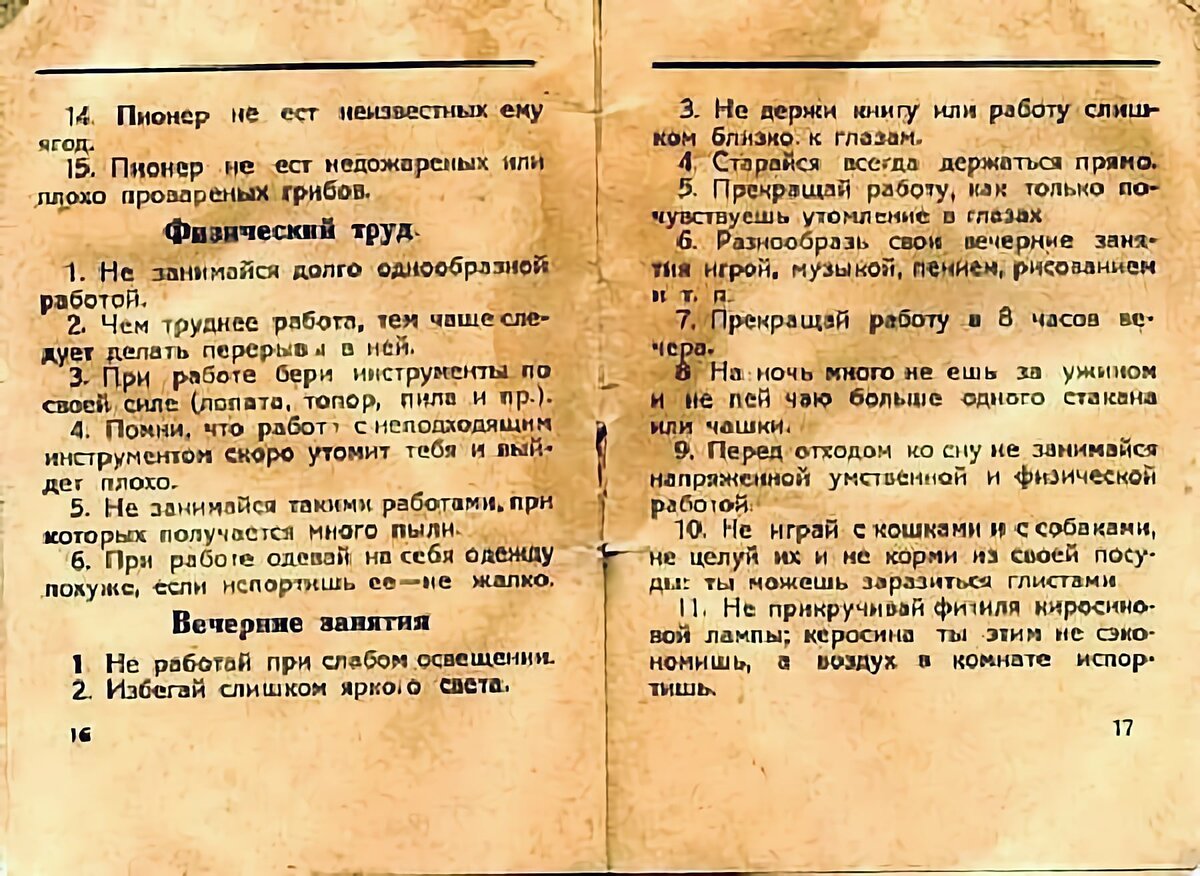 14. Пионер не ест неизвестных ему
ягод.
15. Пионер не ест недожареных или
плохо провареных грибов.
Физический труд.
1. Не занимайся долго однообразной
работой.
2. Чем труднее работа, тем чаще сле-
дует делать перерывы в ней.
3. При работе бери инструменты по
своей силе (лопата, топор, пила и пр.).
4. Помни, что работа с неподходящим
инструментом скоро утомит тебя и вый-
дет плохо.
5. Не занимайся такими работами, при
которых получается много пыли.
6. При работе одевай на себя одежду
похуже, если испортишь ее—не жалко.
Вечерние занятия
1 Не работай при слабом освещении.
2. Избегай слишком яркого света.
16
3. Не держи книгу или работу слиш-
ком близко к глазам.
4. Старайся всегда держаться прямо.
5. Прекращай работу, как только по-
чувствуешь утомление в глазах
6. Разнообразь свои вечерние заня-
тия игрой, музыкой, пением, рисованием
и т. п.
7. Прекращай работу в 8 часов ве-
чера.
8 На ночь много не ешь за ужином
и не пей чаю больше одного стакана
или чашки.
9. Перед отходом ко сну не занимайся
напряженной умственной и физической
работой.
10. Не играй с кошками и с собаками,
не целуй их и не корми из своей посу-
ды: ты можешь заразиться глистами
11. Не прикручивай фитиля киросино-
вой лампы; керосина ты этим не сэко-
номишь, а воздух в комнате испор-
тишь.
17